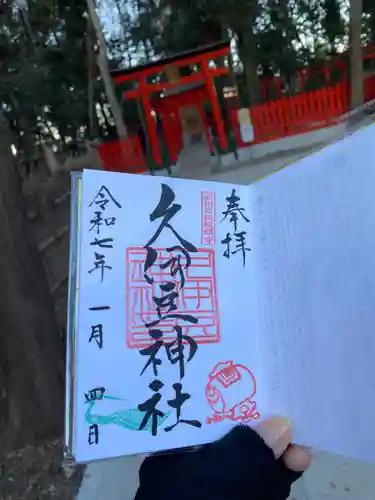 奉拝
久伊豆神社
令和七年 一月 四日